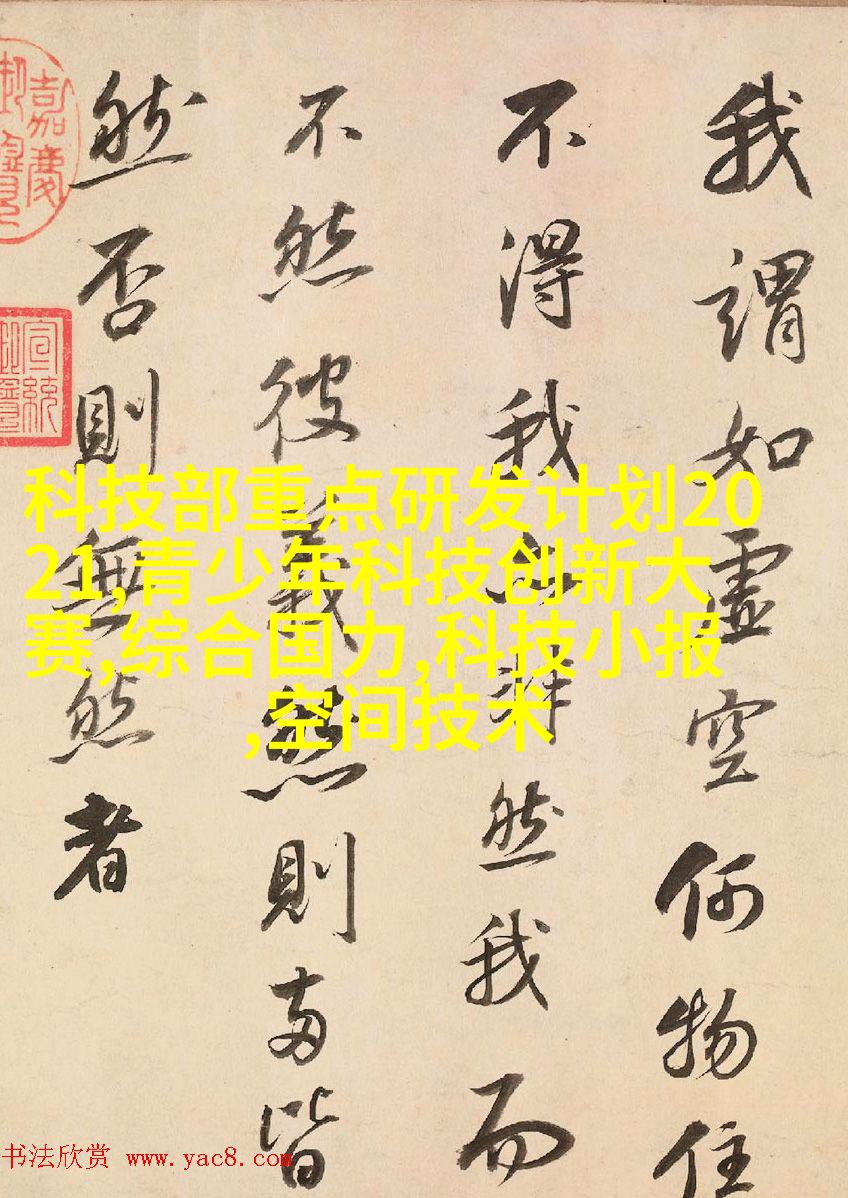 我謂如虛空何物住
不得我非然我而
不然彼義然則兩皆
然否則無然者
嘉慶
御覽
宣統
科技部重点研发计划20
21,青少年科技创新大
赛,综合国力,科技小报
,空间技术
书法欣赏 www.yac8.com